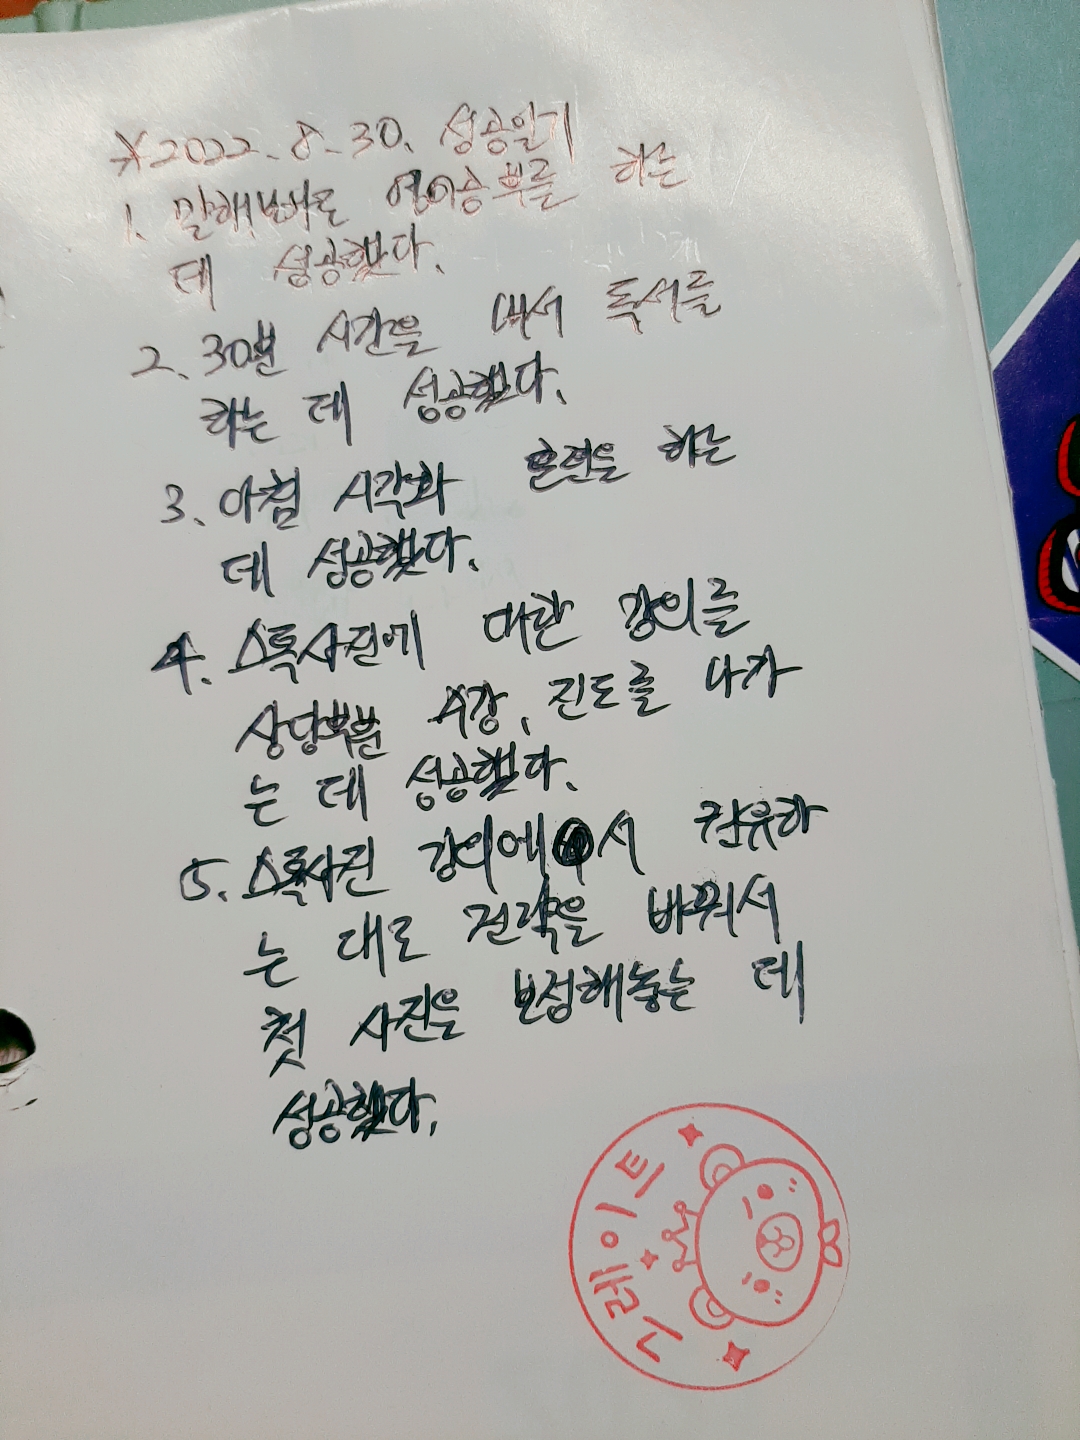 ※2022. 8. 30. 성공일기
1. 말해보카로 영어공부를 하는
데 성공했다.
2. 30분 시간을 내서 독서를
하는 데 성공했다.
3. 아침 시각화 훈련을 하는
데 성공했다.
4. 스톡사진에 대한 강의를
상당부분 수강, 진도를 나가
는 데 성공했다.
5. 스톡사진 강의에서 권유하
는 대로 전략을 바꿔서
첫 사진을 보정해놓는 데
성공했다.
그레이트